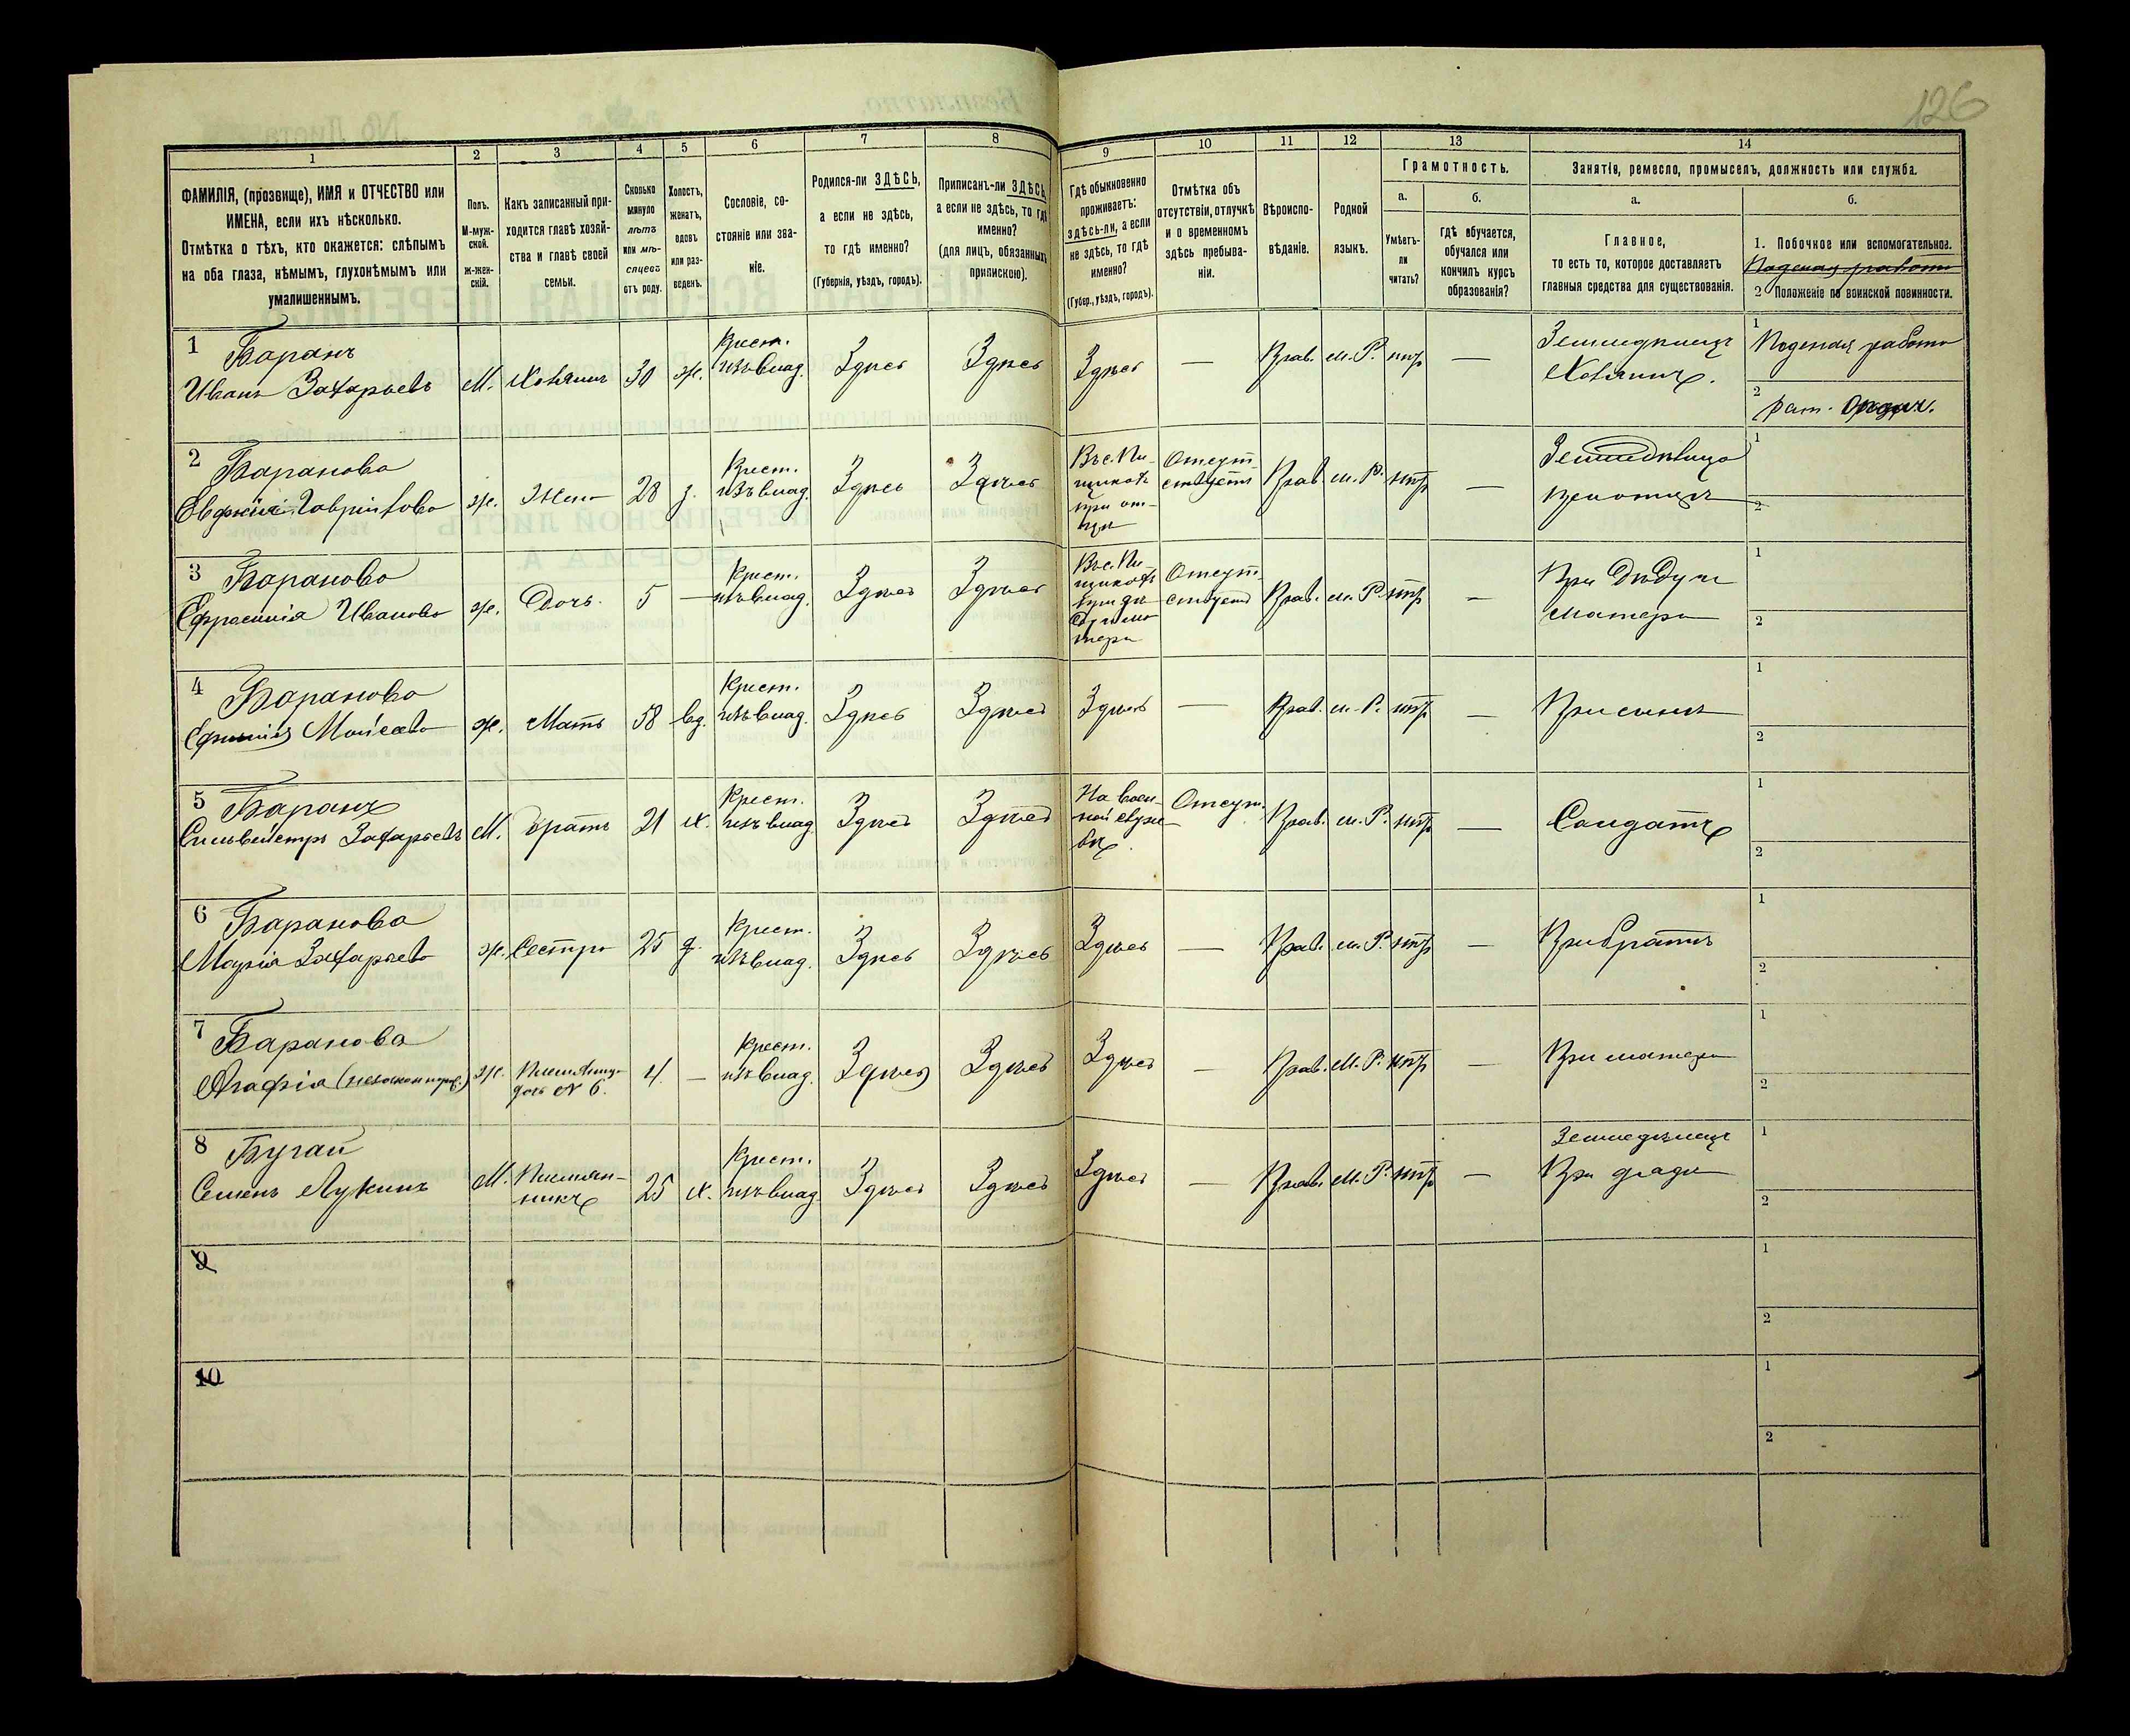 126
1
2
3
4
5
6
7
8
9
10
11
12
13
14
ФАМИЛІЯ, (прозвище), ИМЯ и ОТЧЕСТВО или
ИМЕНА, если ихъ нѣсколько.
Отмѣтка о тѣхъ, кто окажется: слѣпымъ
на оба глаза, нѣмымъ, глухонѣмымъ или
умалишеннымъ.
Полъ.
М-муж-
ской.
ж-жен-
скій.
Какъ записанный при-
ходится главѣ хозяй-
ства и главѣ своей
семьи.
Сколько
минуло
лѣтъ
или мѣ-
сяцевъ
отъ роду.
Холостъ,
женатъ,
вдовъ
или раз-
веденъ.
Сословіе, со-
стояніе или зва-
ніе.
Родился-ли ЗДѢСЬ,
а если не здѣсь,
то гдѣ именно?
(Губернія, уѣздъ, городъ).
Приписанъ-ли ЗДѢСЬ,
а если не здѣсь, то гдѣ
именно?
(для лицъ, обязанныхъ
припискою).
Гдѣ обыкновенно
проживаетъ:
здѣсь-ли, а если
не здѣсь, то гдѣ
именно?
(Губер., уѣздъ, городъ).
Отмѣтка объ
отсутствіи, отлучкѣ
и о временномъ
здѣсь пребыва-
ніи.
Вѣроиспо-
вѣданіе.
Родной
языкъ.
Грамотность.
а.
Умѣетъ-
ли
читать?
б.
гдѣ обучается,
обучался или
кончилъ курсъ
образованія?
Занятіе, ремесло, промыселъ, должность или служба.
а.
Главное,
то есть то, которое доставляетъ
главныя средства для существованія.
б.
1. Побочное или вспомогательное.
2 Положеніе по воинской повинности.
1
Баранъ
Иванъ Захарьевъ
М.
Хозяинъ
30
ж.
Крест.
изъ влад.
Здѣсь
Здѣсь
Здѣсь
—
Прав.
м. Р.
нѣтъ
—
Земледѣлецъ
Хозяинъ.
1
Поденная работа
2
2
Баранова
ж.
Жена
28
з.
Крест.
изъ влад.
Здѣсь
Здѣсь
при от-
цѣ
Отсут-
ствуетъ
Прав.
м. Р.
нѣтъ
—
1
2
3
Баранова
Ефросинія Иванова
ж.
Дочь
5
—
Крест.
изъ влад.
Здѣсь
Здѣсь
при дѣ-
дѣ и ма-
тери
Отсут-
ствуетъ
Прав.
м. Р.
нѣтъ
—
При Дѣду и
матери
1
2
4
Баранова
ж.
Мать
58
вд.
Крест.
изъ влад.
Здѣсь
Здѣсь
Здѣсь
—
Прав.
м. Р.
нѣтъ
—
При сынѣ
1
2
5
Баранъ
Сильвейстръ Захарьевъ
М.
братъ
21
х.
Крест.
изъ влад.
Здѣсь
Здѣсь
На воен-
ной служ-
бѣ
Отсут.
Прав.
м. Р.
нѣтъ
—
Солдатъ
1
2
6
Баранова
Марія Захарьева
ж.
Сестра
25
д.
Крест.
изъ влад.
Здѣсь
Здѣсь
Здѣсь
—
Прав.
м. Р.
нѣтъ
—
При братѣ
1
2
7
Баранова
Агафія
ж.
дочь № 6.
4
—
Крест.
изъ влад.
Здѣсь
Здѣсь
Здѣсь
—
Прав.
М. Р.
нѣтъ
—
При матери
1
2
8
Бугай
Семенъ Лукинъ
М.
Племян-
никъ
25
х.
Крест.
изъ влад.
Здѣсь
Здѣсь
Здѣсь
—
Прав.
М. Р.
нѣтъ
—
Земледѣлецъ
При дяди
1
2
9
1
2
10
1
2